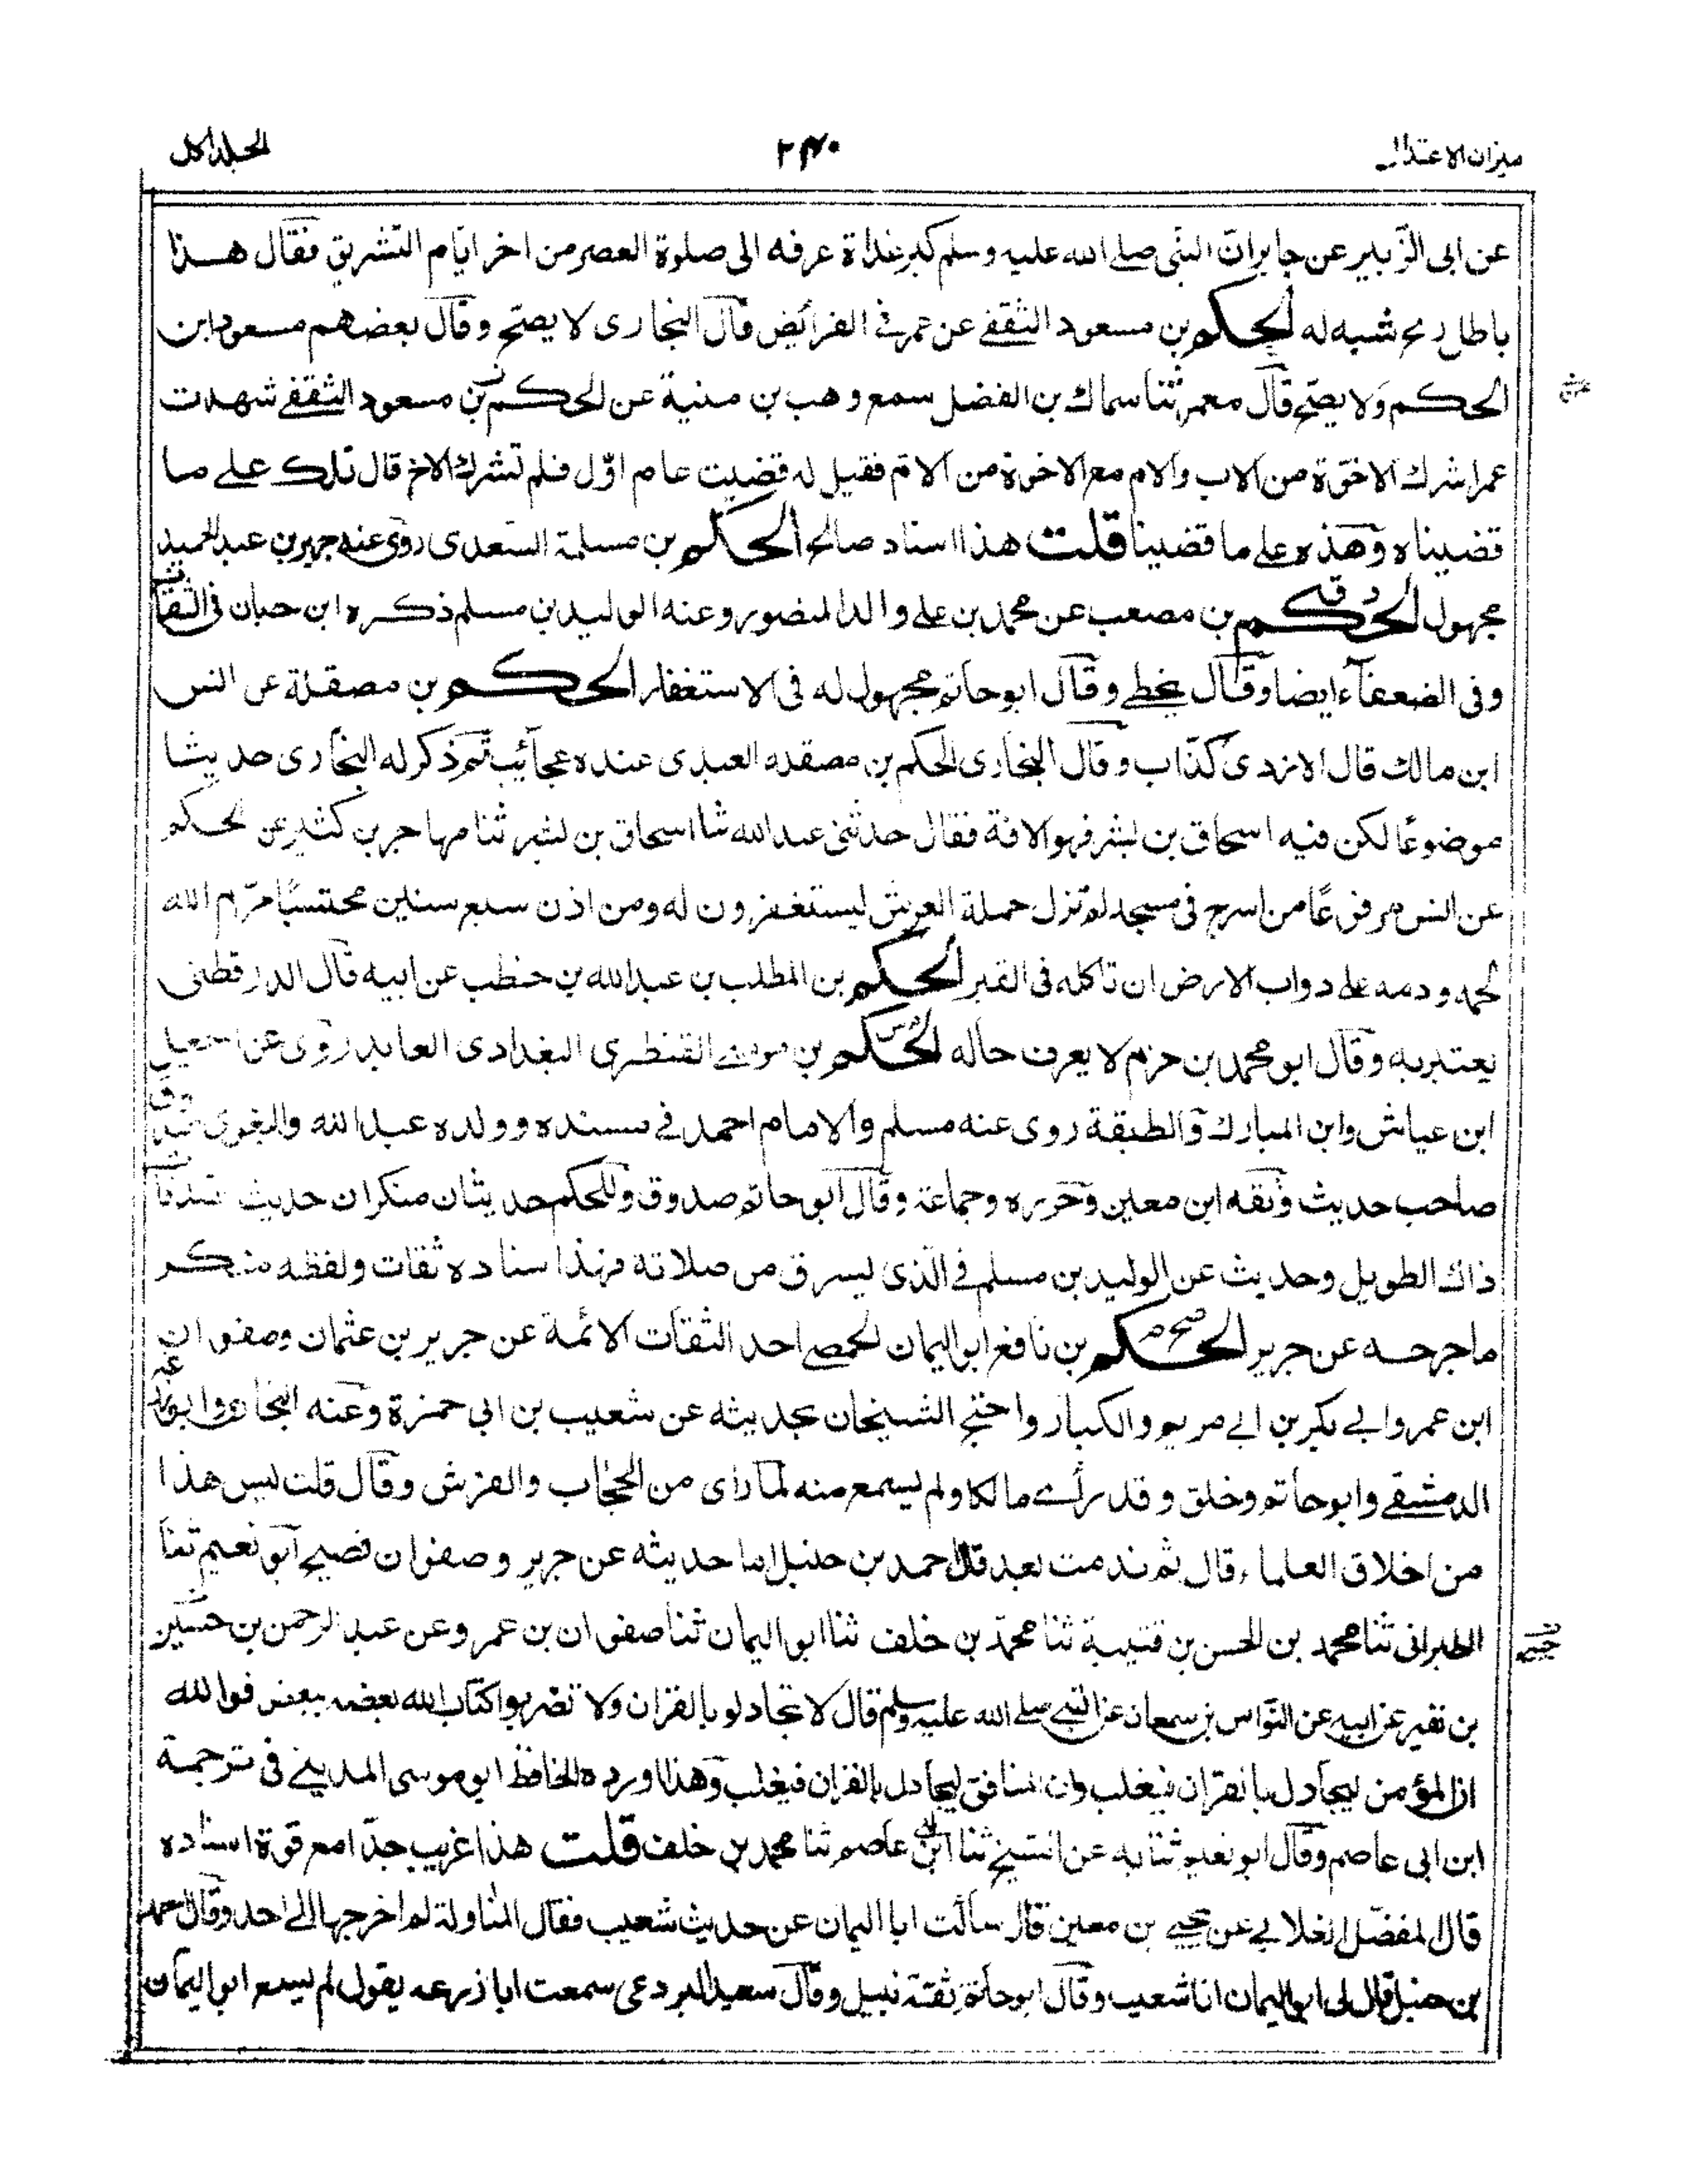 ميزان الاعتدال
٢٤٠
المجلد الاول
عن ابى الزبير عن جابر ان النبى صلے الله عليه وسلم كبر غداة عرفه الى صلوة العصر من اخر ايام التشريق فقال هذا
باطل شبه له الحكم بن مسعود الثقفے عن عمر فے الفرائض قال البخارى لا يصح وقال بعضهم مسعود ابن
الحكم ولا يصح قال معمر ثنا سماك بن الفضل سمع وهب بن منبه عن الحكم بن مسعود الثقفے شهدت
عمر اشرك الاخوة من الاب والام مع الاخوة من الام فقيل له قضيت عام اول فلم تشرك الاخ قال تلك علے ما
قضيناه وهذه علے ما قضينا قلت هذا اسناد صالح الحكم بن مسلمة السعدى روى عنه جرير بن عبد الحميد
مجهول الحكم بن مصعب عن محمد بن علے والد المنصور وعنه الوليد بن مسلم ذكره ابن حبان فى الثقات
وفى الضعفاء ايضا وقال يخطے وقال ابو حاتم مجهول له فى الاستغفار الحكم بن مصقلة عن انس
ابن مالك قال الازدى كذاب وقال البخارى الحكم بن مصقله العبدى عنده عجائب ثم ذكر له البخارى حديثا
موضوعا لكن فيه اسحاق بن بشر فهو الافة فقال حدثنى عبد الله ثنا اسحاق بن بشر ثنا مهاجر بن كثير عن الحكم
عن انس مرفوعا من اسرج فى مسجد لم تزل حملة العرش يستغفرون له ومن اذن سبع سنين محتسبا حرم الله
لحمه ودمه علے دواب الارض ان تاكله فى القبر الحكم بن المطلب بن عبد الله بن حنطب عن ابيه قال الدارقطنى
يعتبر به وقال ابو محمد بن حزم لا يعرف حاله الحكم بن موسے القنطرى البغدادى العابد روى عن اسمعيل
ابن عياش وابن المبارك والطبقة روى عنه مسلم والامام احمد فے مسنده وولده عبد الله والبغوى
صاحب حديث وثقه ابن معين وجزره وجماعة وقال ابو حاتم صدوق وللحكم حديثان منكران حديث
ذاك الطويل وحديث عن الوليد بن مسلم فے الذى يسرق من صلاته فهذا اسناده ثقات ولفظه منكر
ما جرحه عن جرير الحكم بن نافع ابو اليمان الحمصے احد الثقات الائمة عن جرير بن عثمان وصفوان
ابن عمر وابے بكر بن ابے مريم والكبار واحتج الشيخان بحديثه عن شعيب بن ابى حمزة وعنه البخارى وابو
الدمشقے وابو حاتم وخلق وقد رأے مالكا ولم يسمع منه لما راى من الحجاب والفرش وقال قلت ليس هذا
من اخلاق العلماء قال ثم ندمت بعد قال احمد بن حنبل اما حديثه عن جرير وصفوان فصحيح ابو نعيم ثنا
الطبرانى ثنا محمد بن الحسن بن قتيبة ثنا محمد بن خلف ثنا ابو اليمان ثنا صفوان بن عمرو عن عبد الرحمن بن
بن نفير عن ابيه عن النواس بن سمعان عن النبے صلے الله عليه وسلم قال لا تجادلوا بالقران ولا تضربوا كتاب الله بعضه ببعض فوالله
ان المؤمن ليجادل بالقران فيغلب وان المنافق ليجادل بالقران فيغلب وهذا اورده الحافظ ابو موسى المدينے فى ترجمة
ابن ابى عاصم وقال ابو نعيم ثنا به عن ابى الشيخ ثنا ابن ابى عاصم ثنا محمد بن خلف قلت هذا غريب جدا مع قوة اسناده
قال المفضل الغلابے عن يحيے بن معين قال سألت ابا اليمان عن حديث شعيب فقال المناولة لم اخرجها الے احد وقال احمد
بن حنبل قال لى ابو اليمان انا شعيب وقال ابو حاتم ثقة نبيل وقال سعيد البردعى سمعت ابا زرعه يقول لم يسمع ابو اليمان